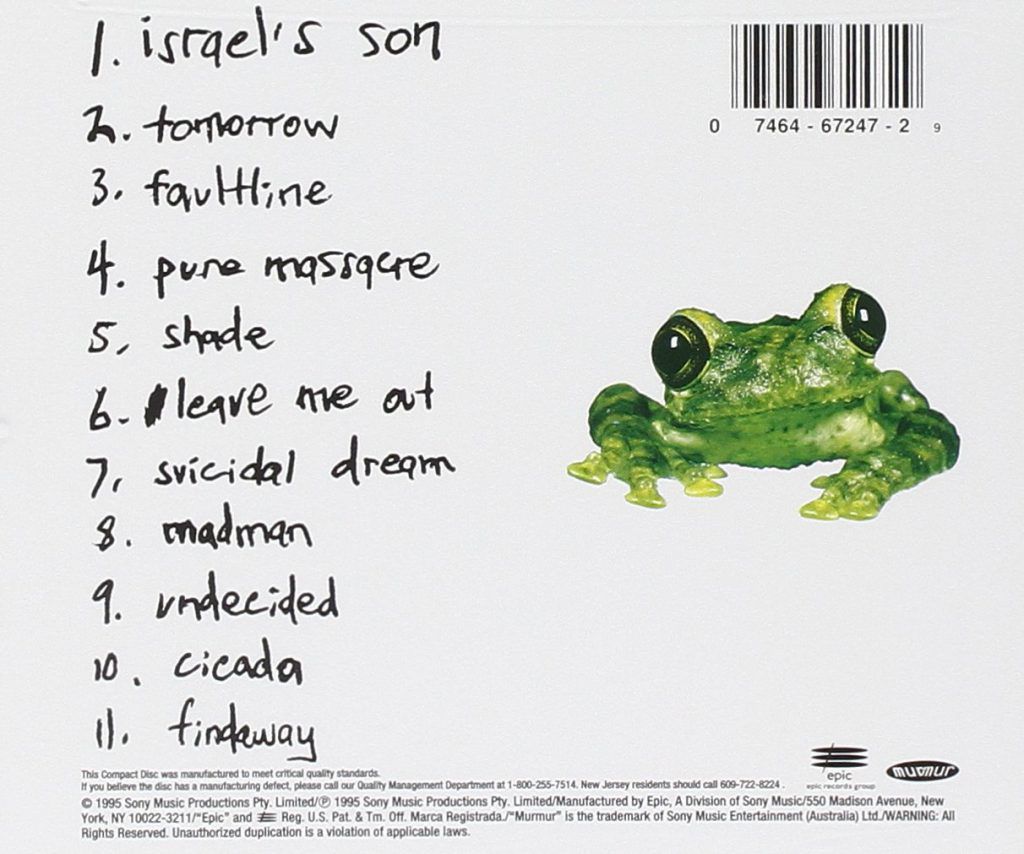 1. israel's son
2. tomorrow
3. faultline
4. pure massacre
5. shade
6. leave me out
7. suicidal dream
8. madman
9. undecided
10. cicada
11. findaway
0 7464 - 67247 - 2 9
epic
epic records group
murmur
This Compact Disc was manufactured to meet critical quality standards.
If you believe the disc has a manufacturing defect, please call our Quality Management Department at 1-800-255-7514. New Jersey residents should call 609-722-8224 .
© 1995 Sony Music Productions Pty. Limited/℗ 1995 Sony Music Productions Pty. Limited/Manufactured by Epic, A Division of Sony Music/550 Madison Avenue, New
York, NY 10022-3211/"Epic" and Reg. U.S. Pat. & Tm. Off. Marca Registrada./"Murmur" is the trademark of Sony Music Entertainment (Australia) Ltd./WARNING: All
Rights Reserved. Unauthorized duplication is a violation of applicable laws.